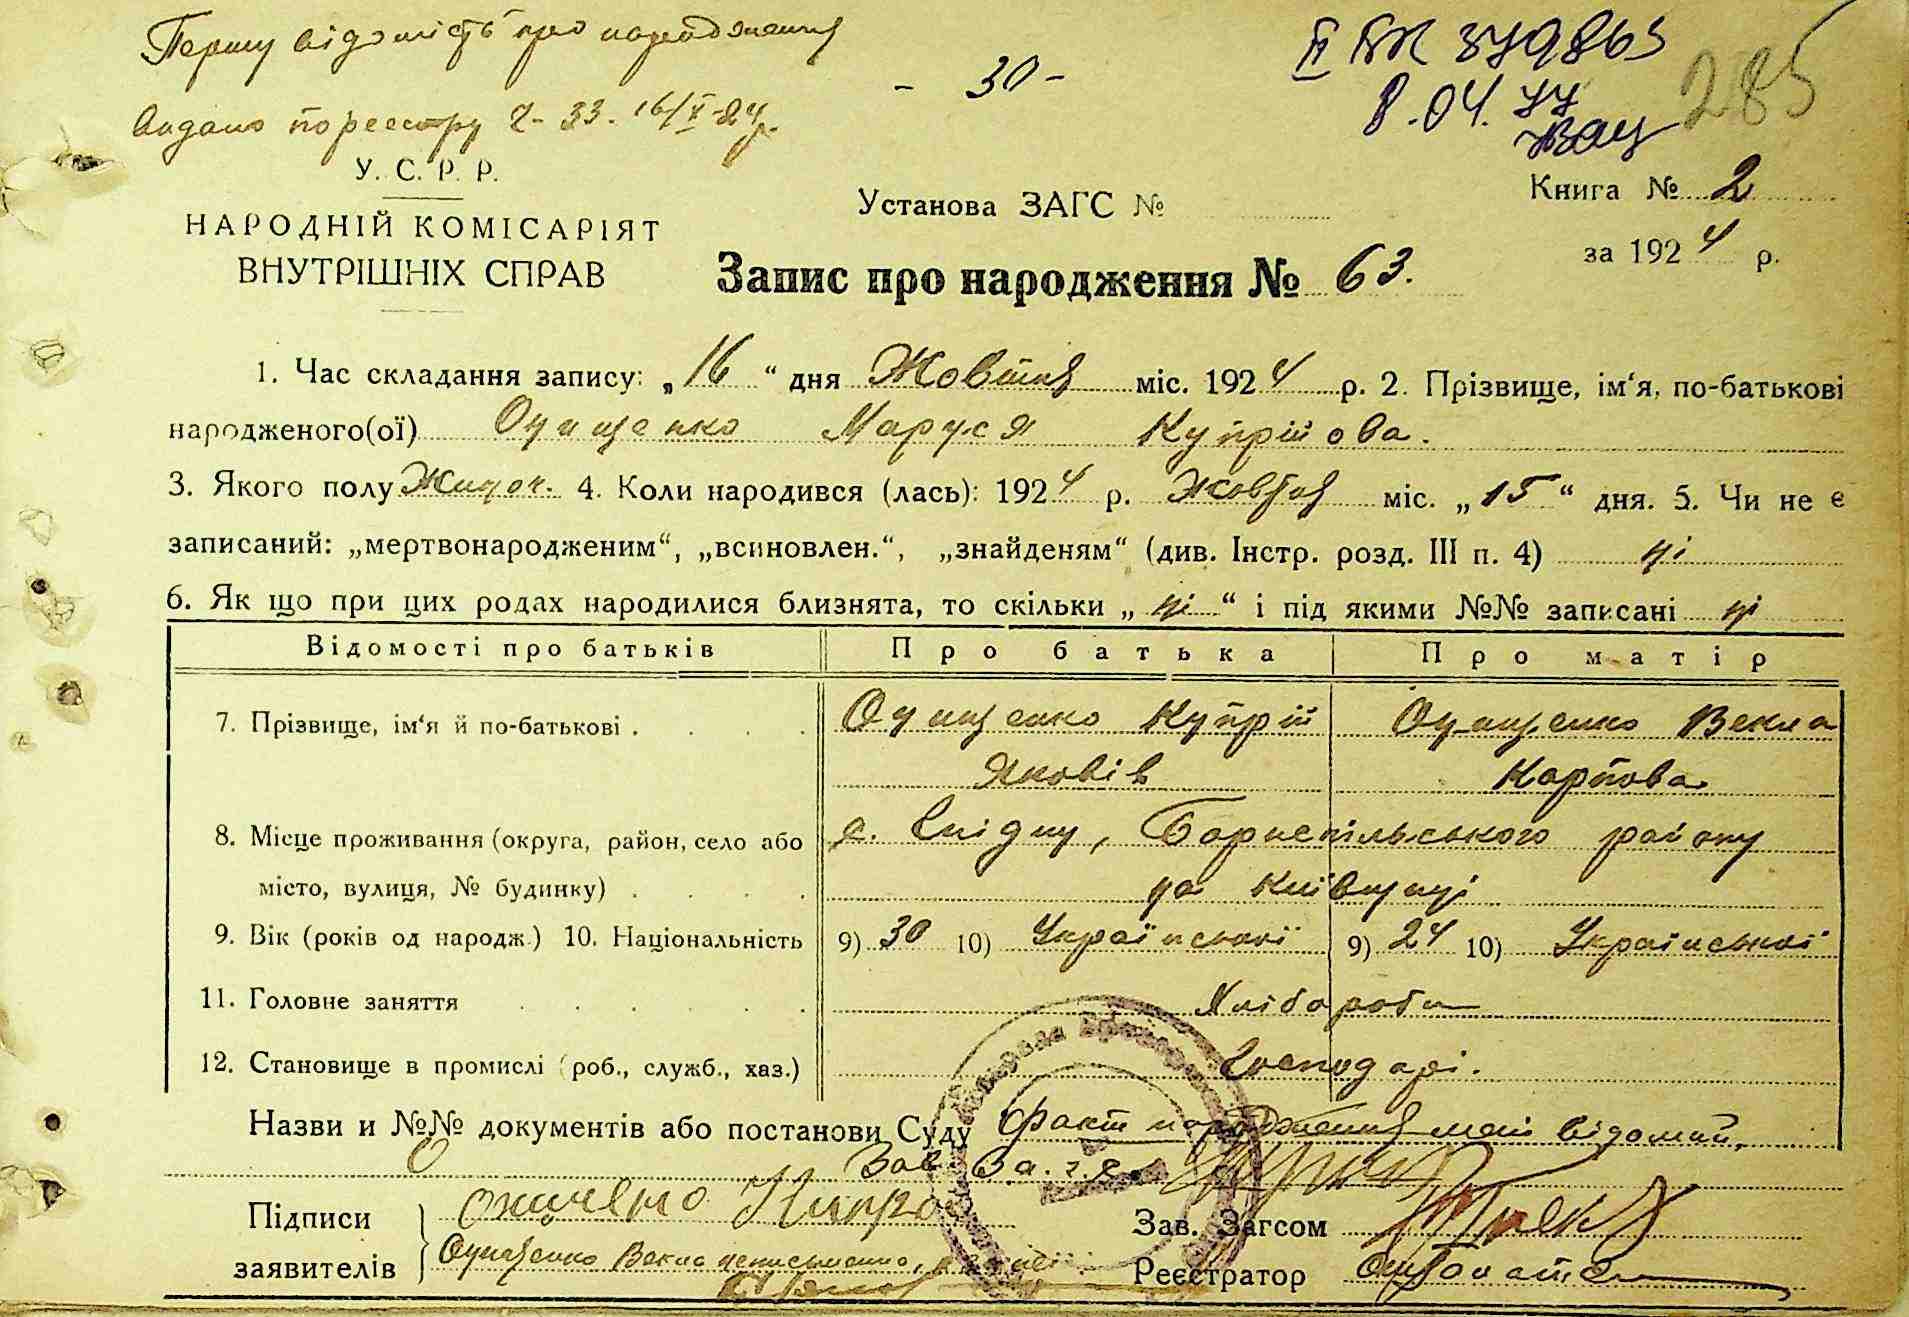 Першу відомість про народження
- 30 -
II БК 379863
285
видано по реєстру Ч- 33. 16/X-24р.
8.04.77
У. С. Р. Р.
НАРОДНІЙ КОМІСАРІЯТ
ВНУТРІШНІХ СПРАВ
Установа ЗАГС №
Книга № 2
за 1924 р.
Запис про народження № 63.
1. Час складання запису: „16“ дня Жовтня міс. 1924 р. 2. Прізвище, ім‘я, по-батькові
народженого(ої) Онищенко Маруся Купрійова.
3. Якого полу Жиноч. 4. Коли народився (лась): 1924 р. Жовтня міс. „15“ дня. 5. Чи не є
записаний: „мертвонародженим“, „всиновлен.“, „знайденям“ (див. Інстр. розд. III п. 4) ні
6. Як що при цих родах народилися близнята, то скільки „ні“ і під якими №№ записані ні
Відомості про батьків Про батька Про матір
7. Прізвище, ім‘я й по-батькові . . . . Онищенко Купрій Онищенко Векла
Яковів Карпова
8. Місце проживання (округа, район, село або с. Бориспільського району
місто, вулиця, № будинку) . . . . на Київщині
9. Вік (років од народж.) 10. Національність 9) 30 10) Української 9) 24 10) Української
11. Головне заняття . . . . . Хлібороби
12. Становище в промислі (роб., служб., хаз.) Господарі.
Назви и №№ документів або постанови Суду Факт народження мені відомий.
Зав. З.а.г.с.
Підписи
заявителів
Онищенко Векла неписьменна,
Зав. Загсом
Реєстратор